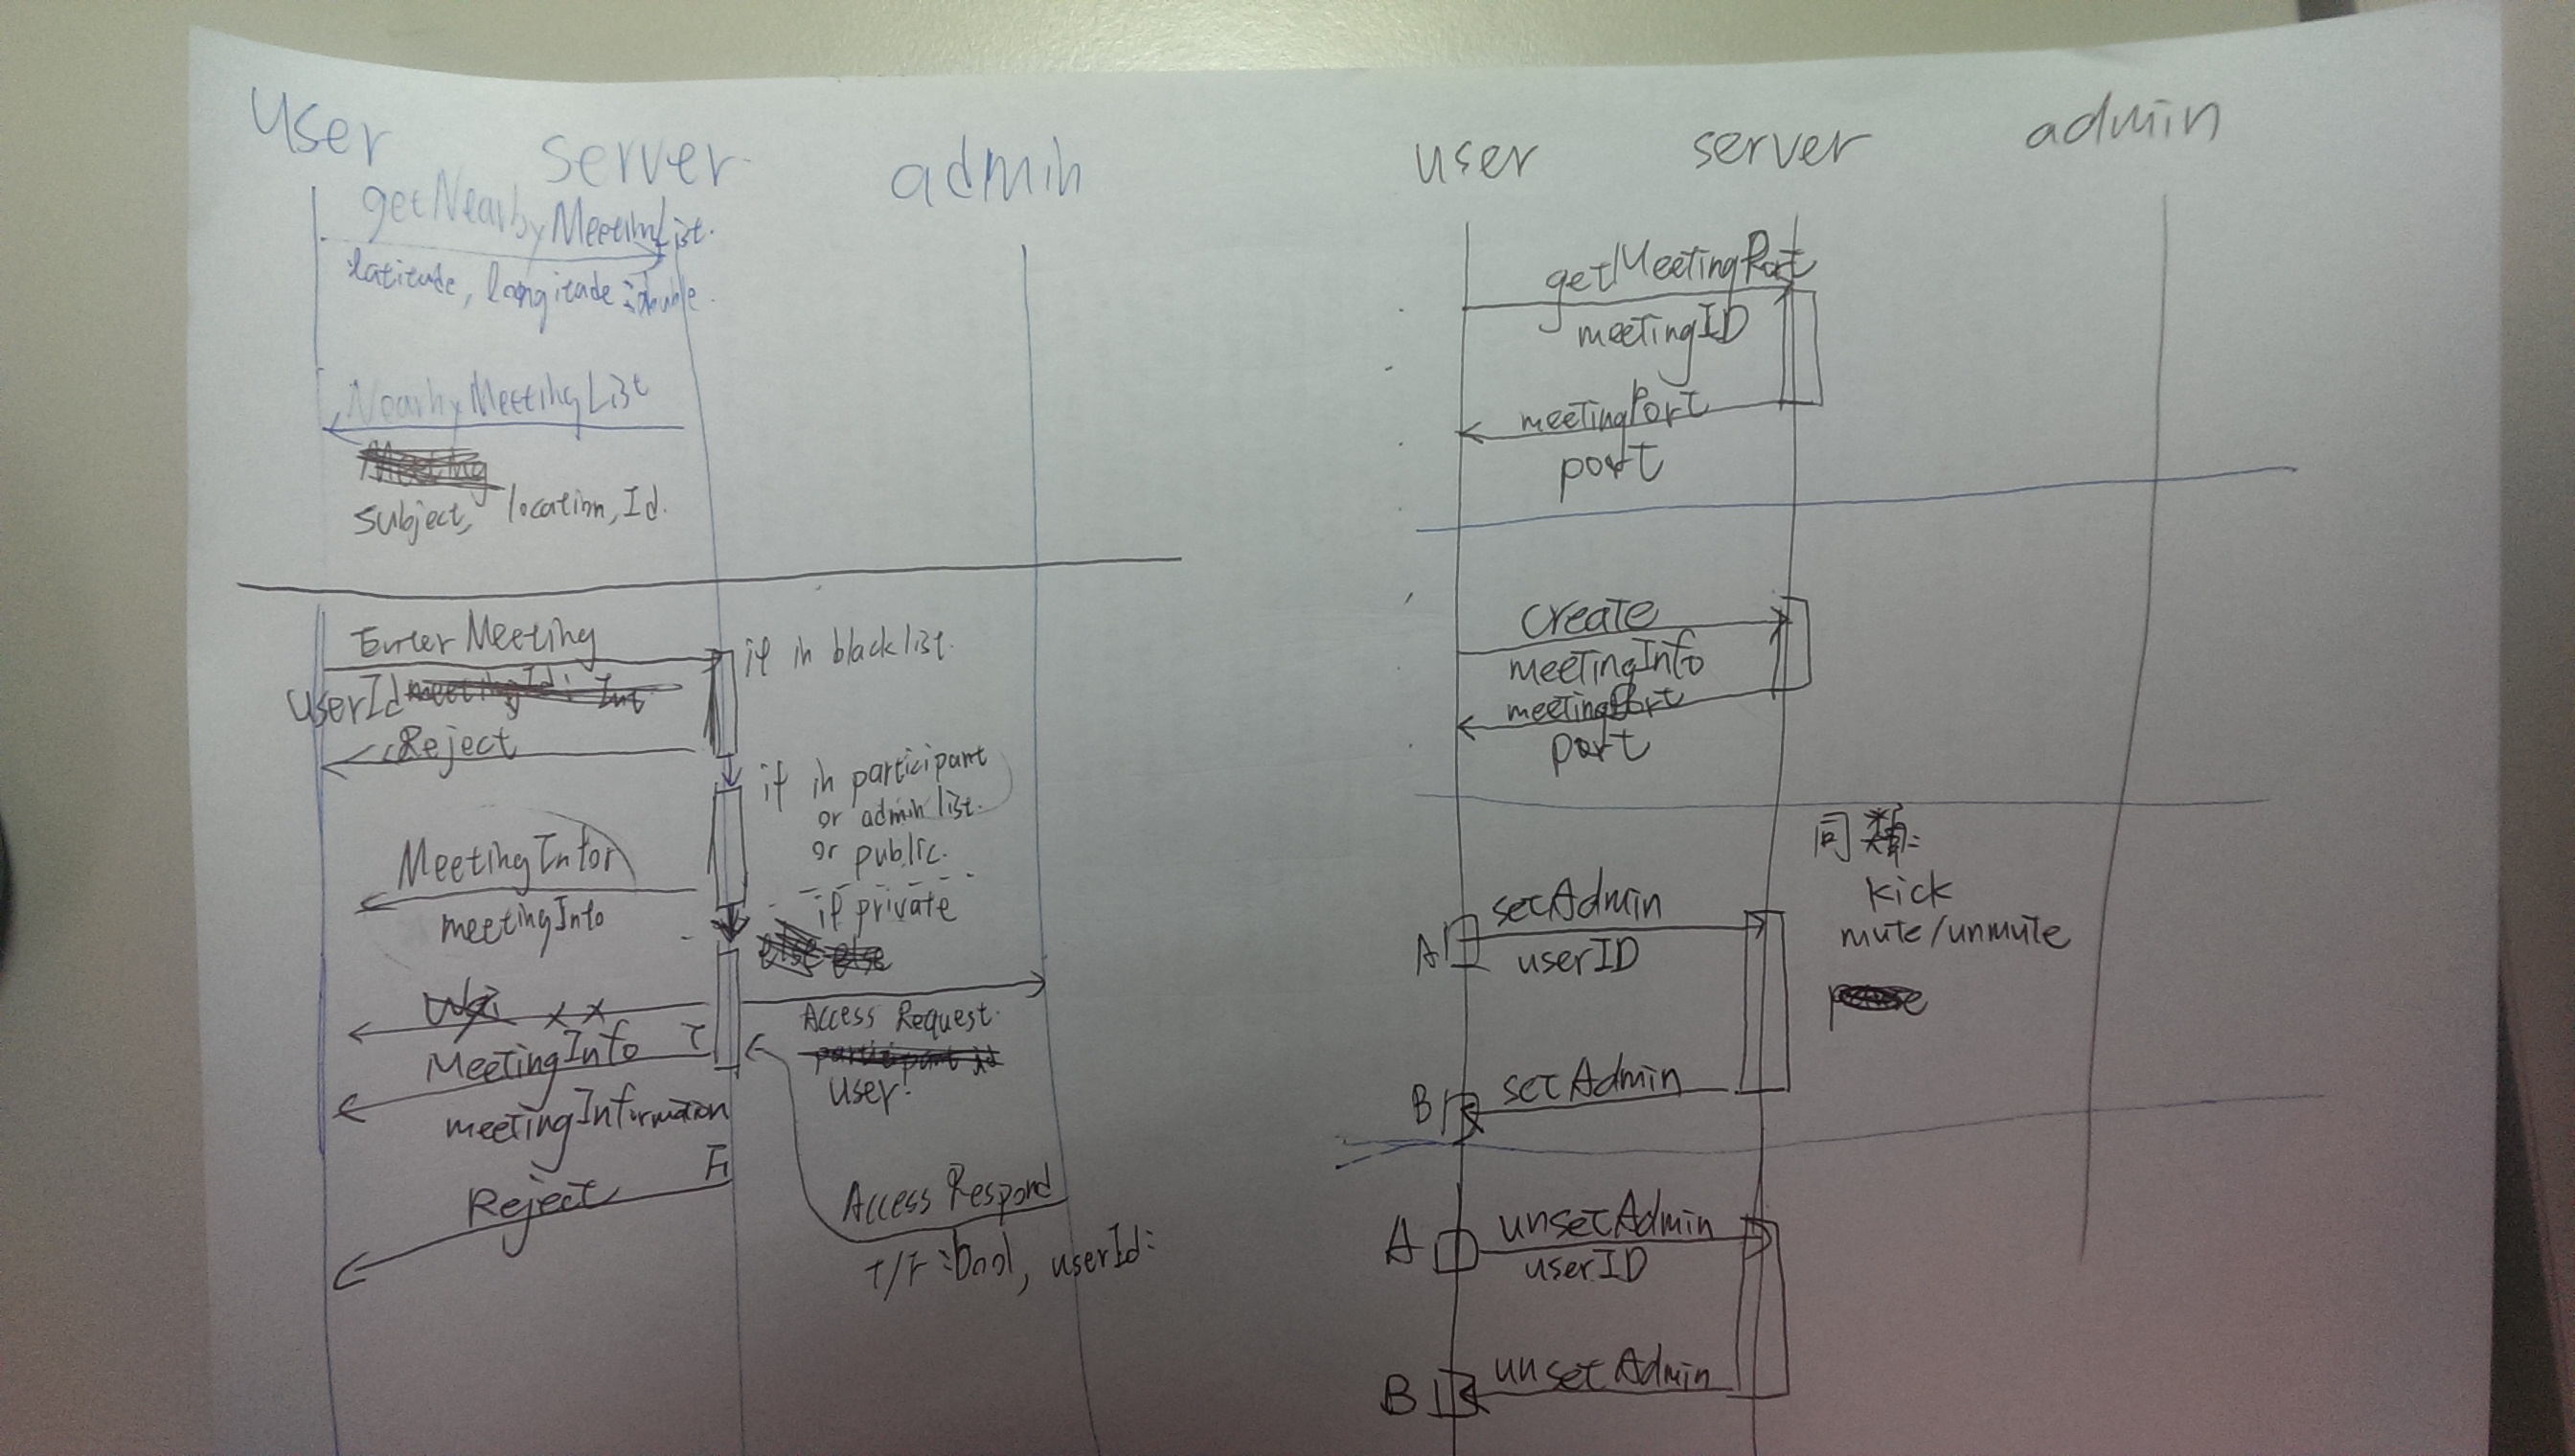 user server admin
getNearbyMeetingList.
latitude, longitude :double.
NearbyMeetingList
Meeting
subject, location, Id.
Enter Meeting
if in blacklist.
userId meetingId: Int
Reject
if in participant
or admin list.
or public.
MeetingInfor
meetingInfo
if private
else else
Wai x x
Access Request.
T
MeetingInfo
participant id
user:
meetingInformation
F
Reject
Access Respond
T/F :bool, userId:
user server admin
getMeetingPort
meetingID
meetingPort
port
create
meetingInfo
meetingPort
port
同類:
kick
mute/unmute
setAdmin
A userID
B setAdmin
A unsetAdmin
userID
B unsetAdmin